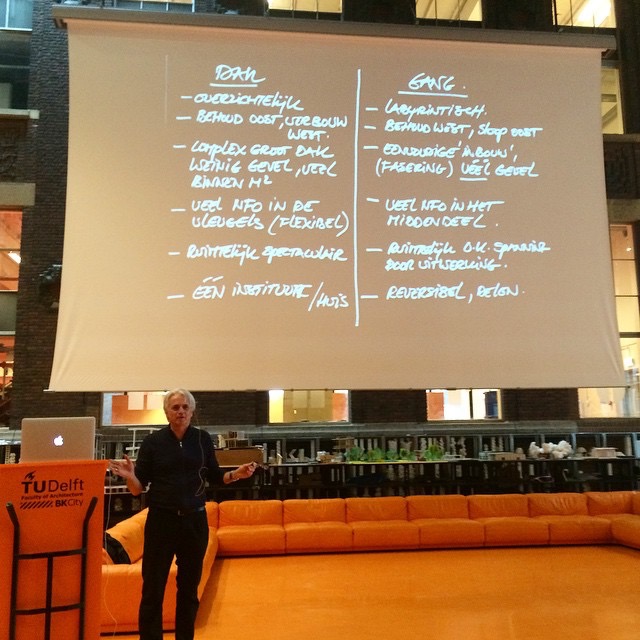 DAK
- OVERZICHTELIJK
- BEHOUD OOST, VERBOUW
WEST.
- COMPLEX GROOT DAK
WEINIG GEVEL, VEEL
BINNEN M²
- VEEL NFO IN DE
VLEUGELS (FLEXIBEL)
- RUIMTELIJK SPECTACULAIR
- ÉÉN INSTITUUT/HUIS
GANG.
- LABYRINTISCH.
- BEHOUD WEST, SLOOP OOST
- EENVOUDIGE 'INBOUW',
(FASERING) VÉÉL GEVEL
- VEEL NFO IN HET
MIDDENDEEL.
- RUIMTELIJK O.K. SPANNING
DOOR UITWERKING.
- REVERSIBEL, DELEN.
TU Delft
Faculty of Architecture
BKCity